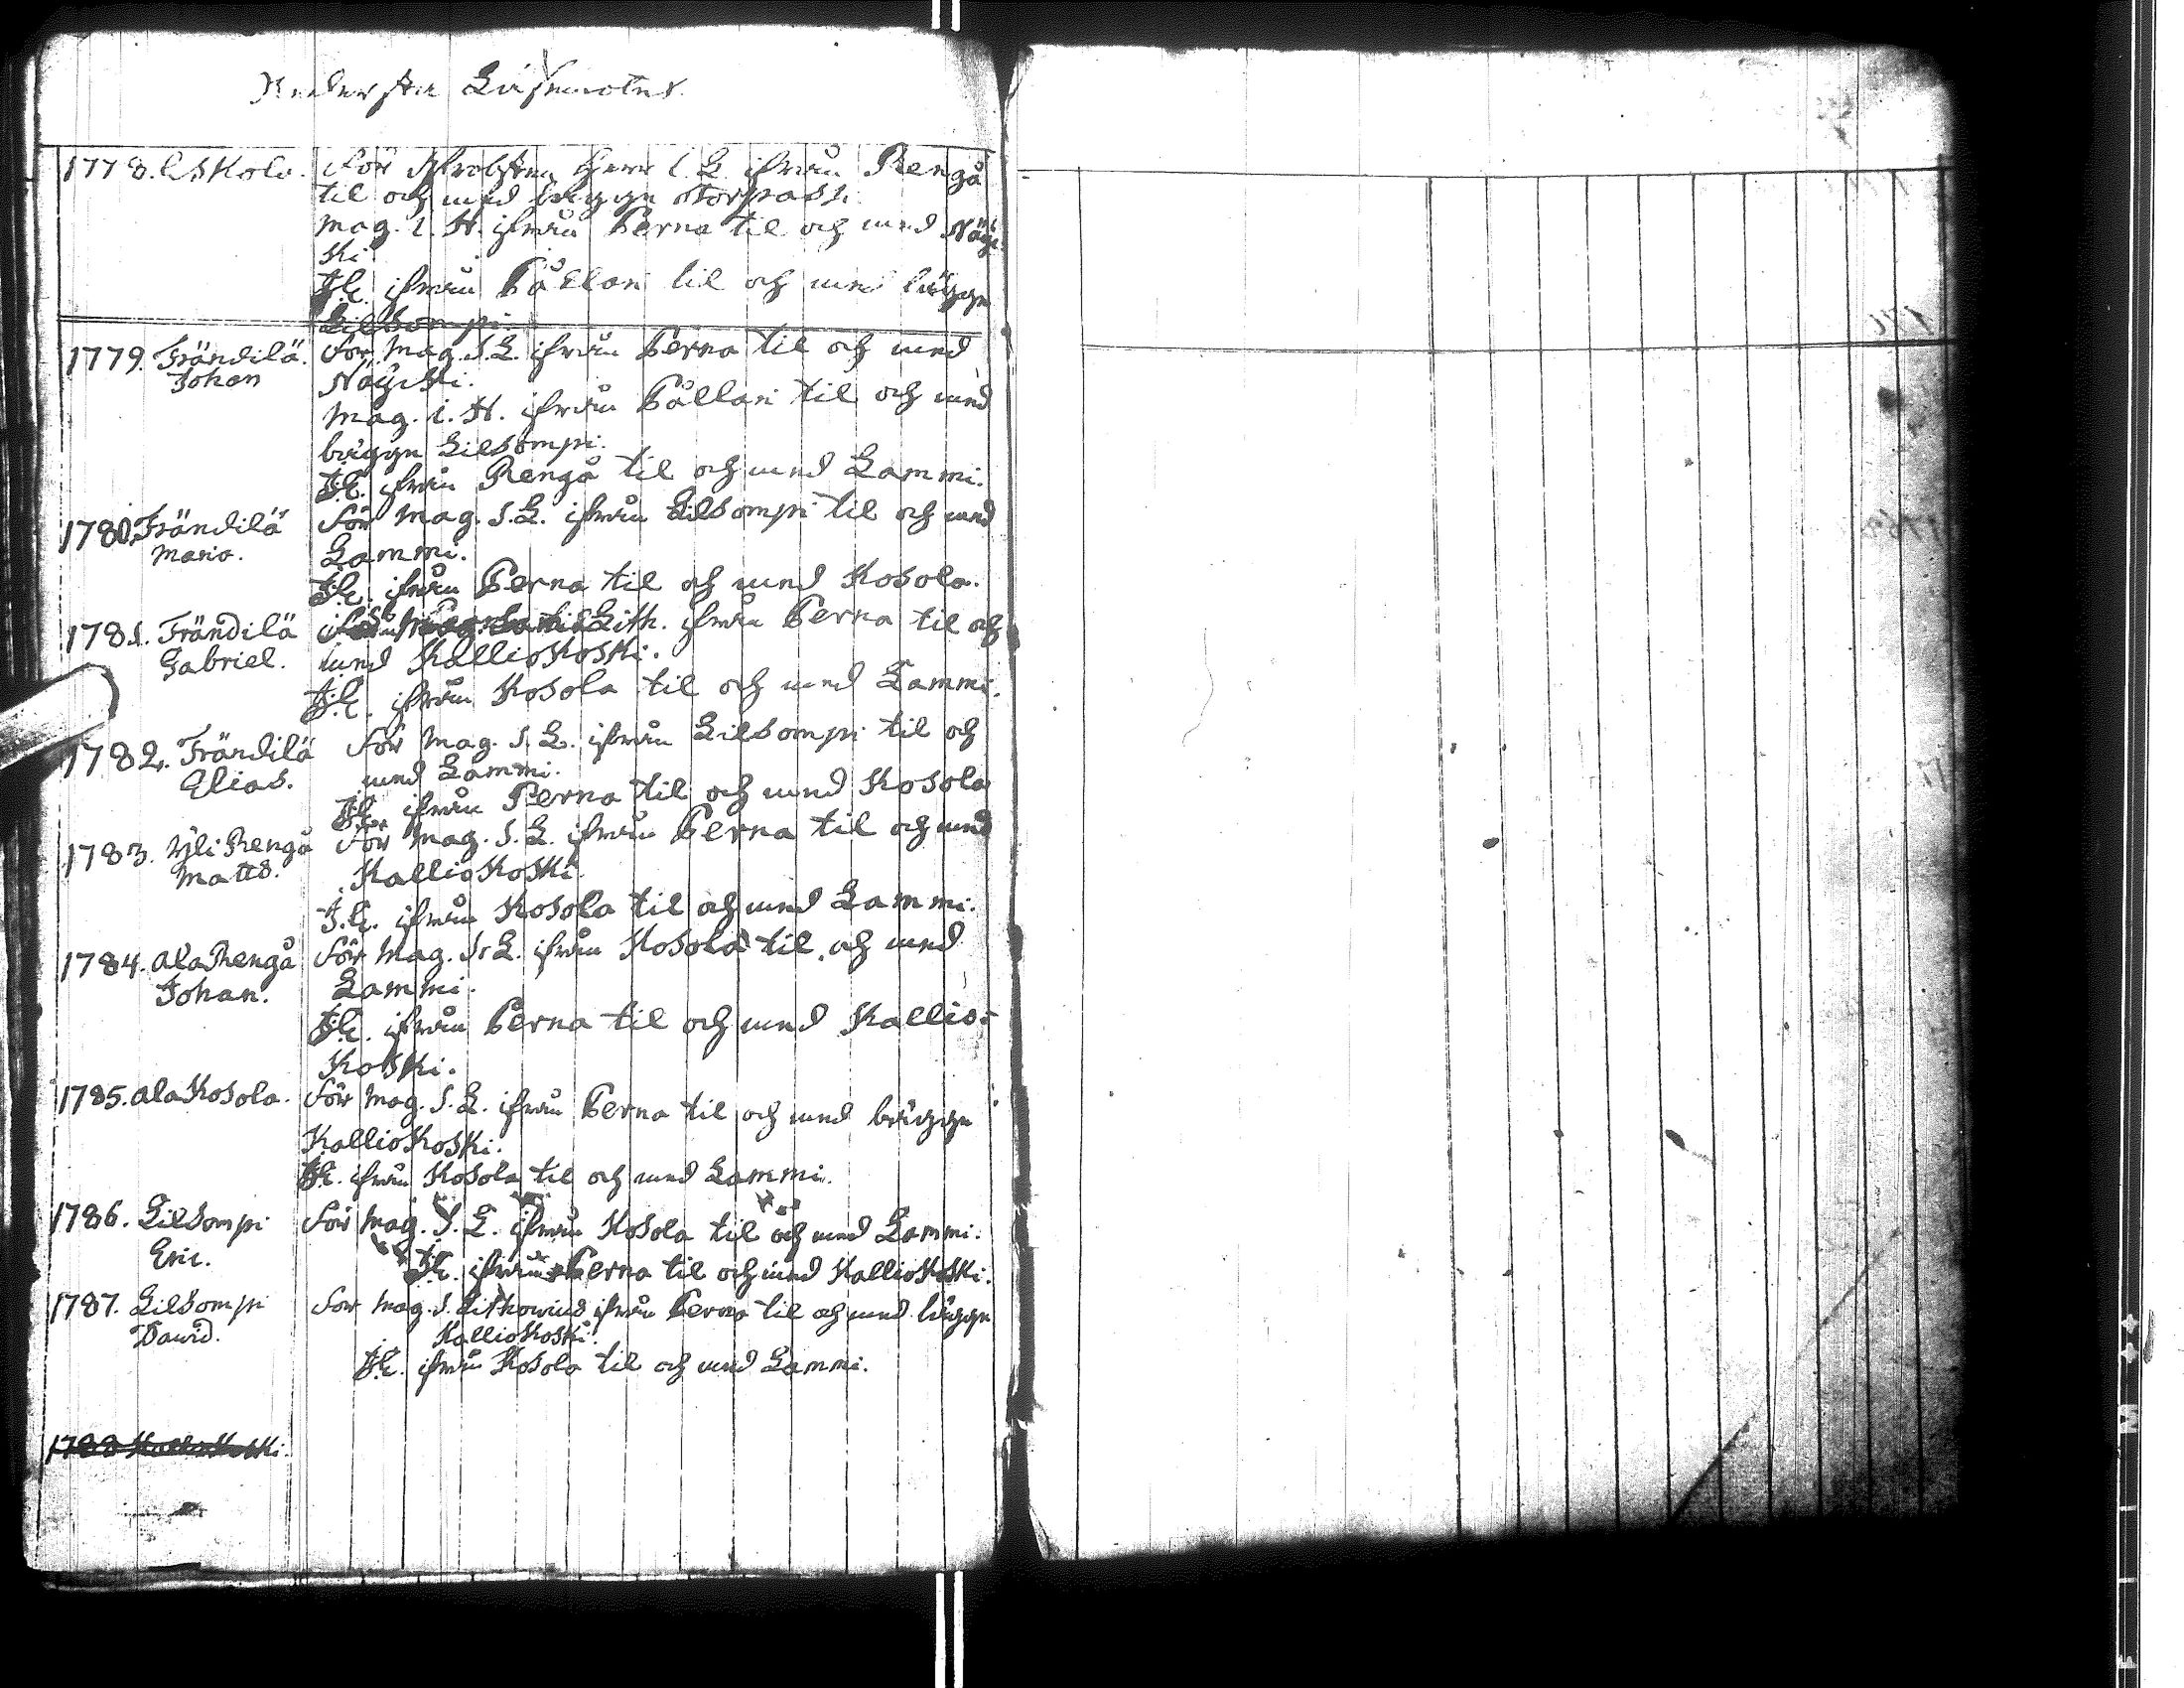 Andersta Läsemötet.
1778. Eskola. För Probsten Herr C. L. ifrån Rengå
til och med bägge Storpassi.
Mag. C. H. ifrån Perna til och med Näys-
ki
J.C. ifrån Pållari til och med bägge
Lilsompi.
1779. Frändilä. För Mag. S. L. ifrån Perna til och med
Johan Näyski.
Mag. C. H. ifrån Pållari til och med
bägge Lilsompi.
J.C. ifrån Rengå til och med Lammi.
1780. Frändilä För Mag. S. L. ifrån Lilsompi til och med
Maria. Lammi.
J.C. ifrån Perna til och med Kosola.
1781. Frändilä Lith. ifrån Perna til och
Gabriel. med Kalliokoski.
J.C. ifrån Kosola til och med Lammi.
1782. Frändilä För Mag. S. L. ifrån Lilsompi til och
Elias. med Lammi.
J.C. ifrån Perna til och med Kosola
1783. Yli Rengå För Mag. S. L. ifrån Perna til och med
Matts. Kalliokoski.
J.C. ifrån Kosola til och med Lammi.
1784. Ala Rengå För Mag. S. L. ifrån Kosola til och med
Johan. Lammi.
J.C. ifrån Perna til och med Kallio-
koski.
1785. Ala Kosola. För Mag. S. L. ifrån Perna til och med bägge
Kalliokoski.
J.C. ifrån Kosola til och med Lammi.
1786. Lilsompi För Mag. S. L. ifrån Kosola til och med Lammi.
Eric. J.C. ifrån Perna til och med Kalliokoski.
1787. Lilsompi För Mag. S. Lithovius ifrån Perna til och med bägge
David. Kalliokoski.
J.C. ifrån Kosola til och med Lammi.
1788 Kalliokoski.